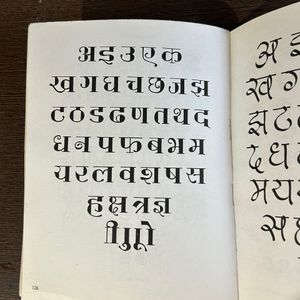 अ इ उ ए क
ख ग घ च छ ज झ
ट ठ ड ढ ण त थ द
ध न प फ ब भ म
य र ल व श ष स
ह क्ष त्र ज्ञ
126
अ इ
ख ग
झ ट
द ध
म य
स